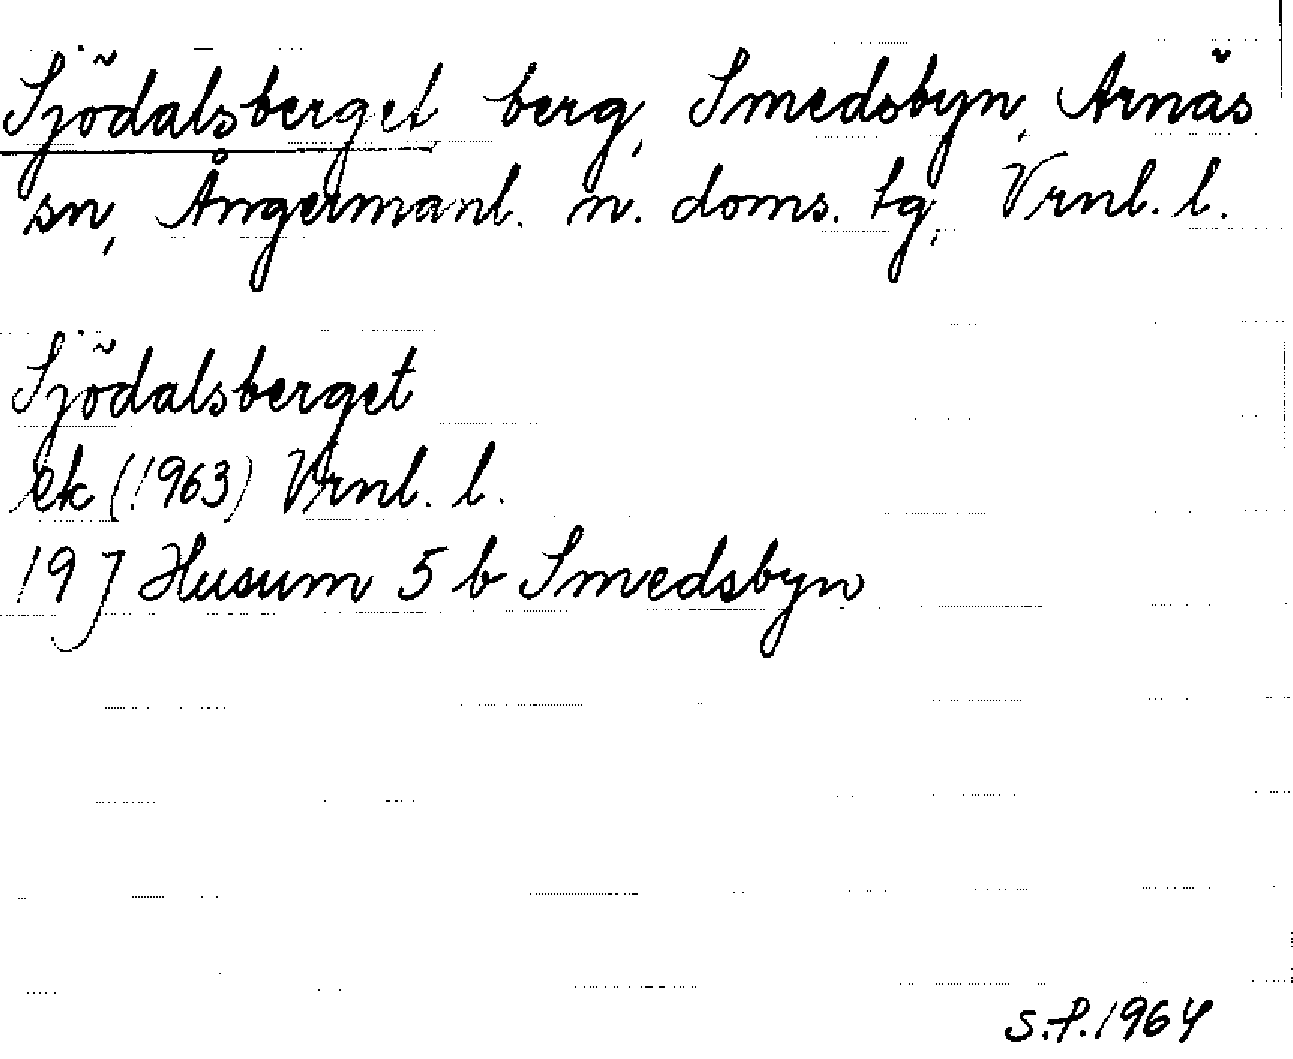 Sjödalsberget berg, Smedsbyn, Arnäs
sn, Ångermanl. n. doms. tg, Vrnl. l.
Sjödalsberget
ek (1963) Vrnl. l.
19 J Husum 5 b Smedsbyn
s.f. 1964